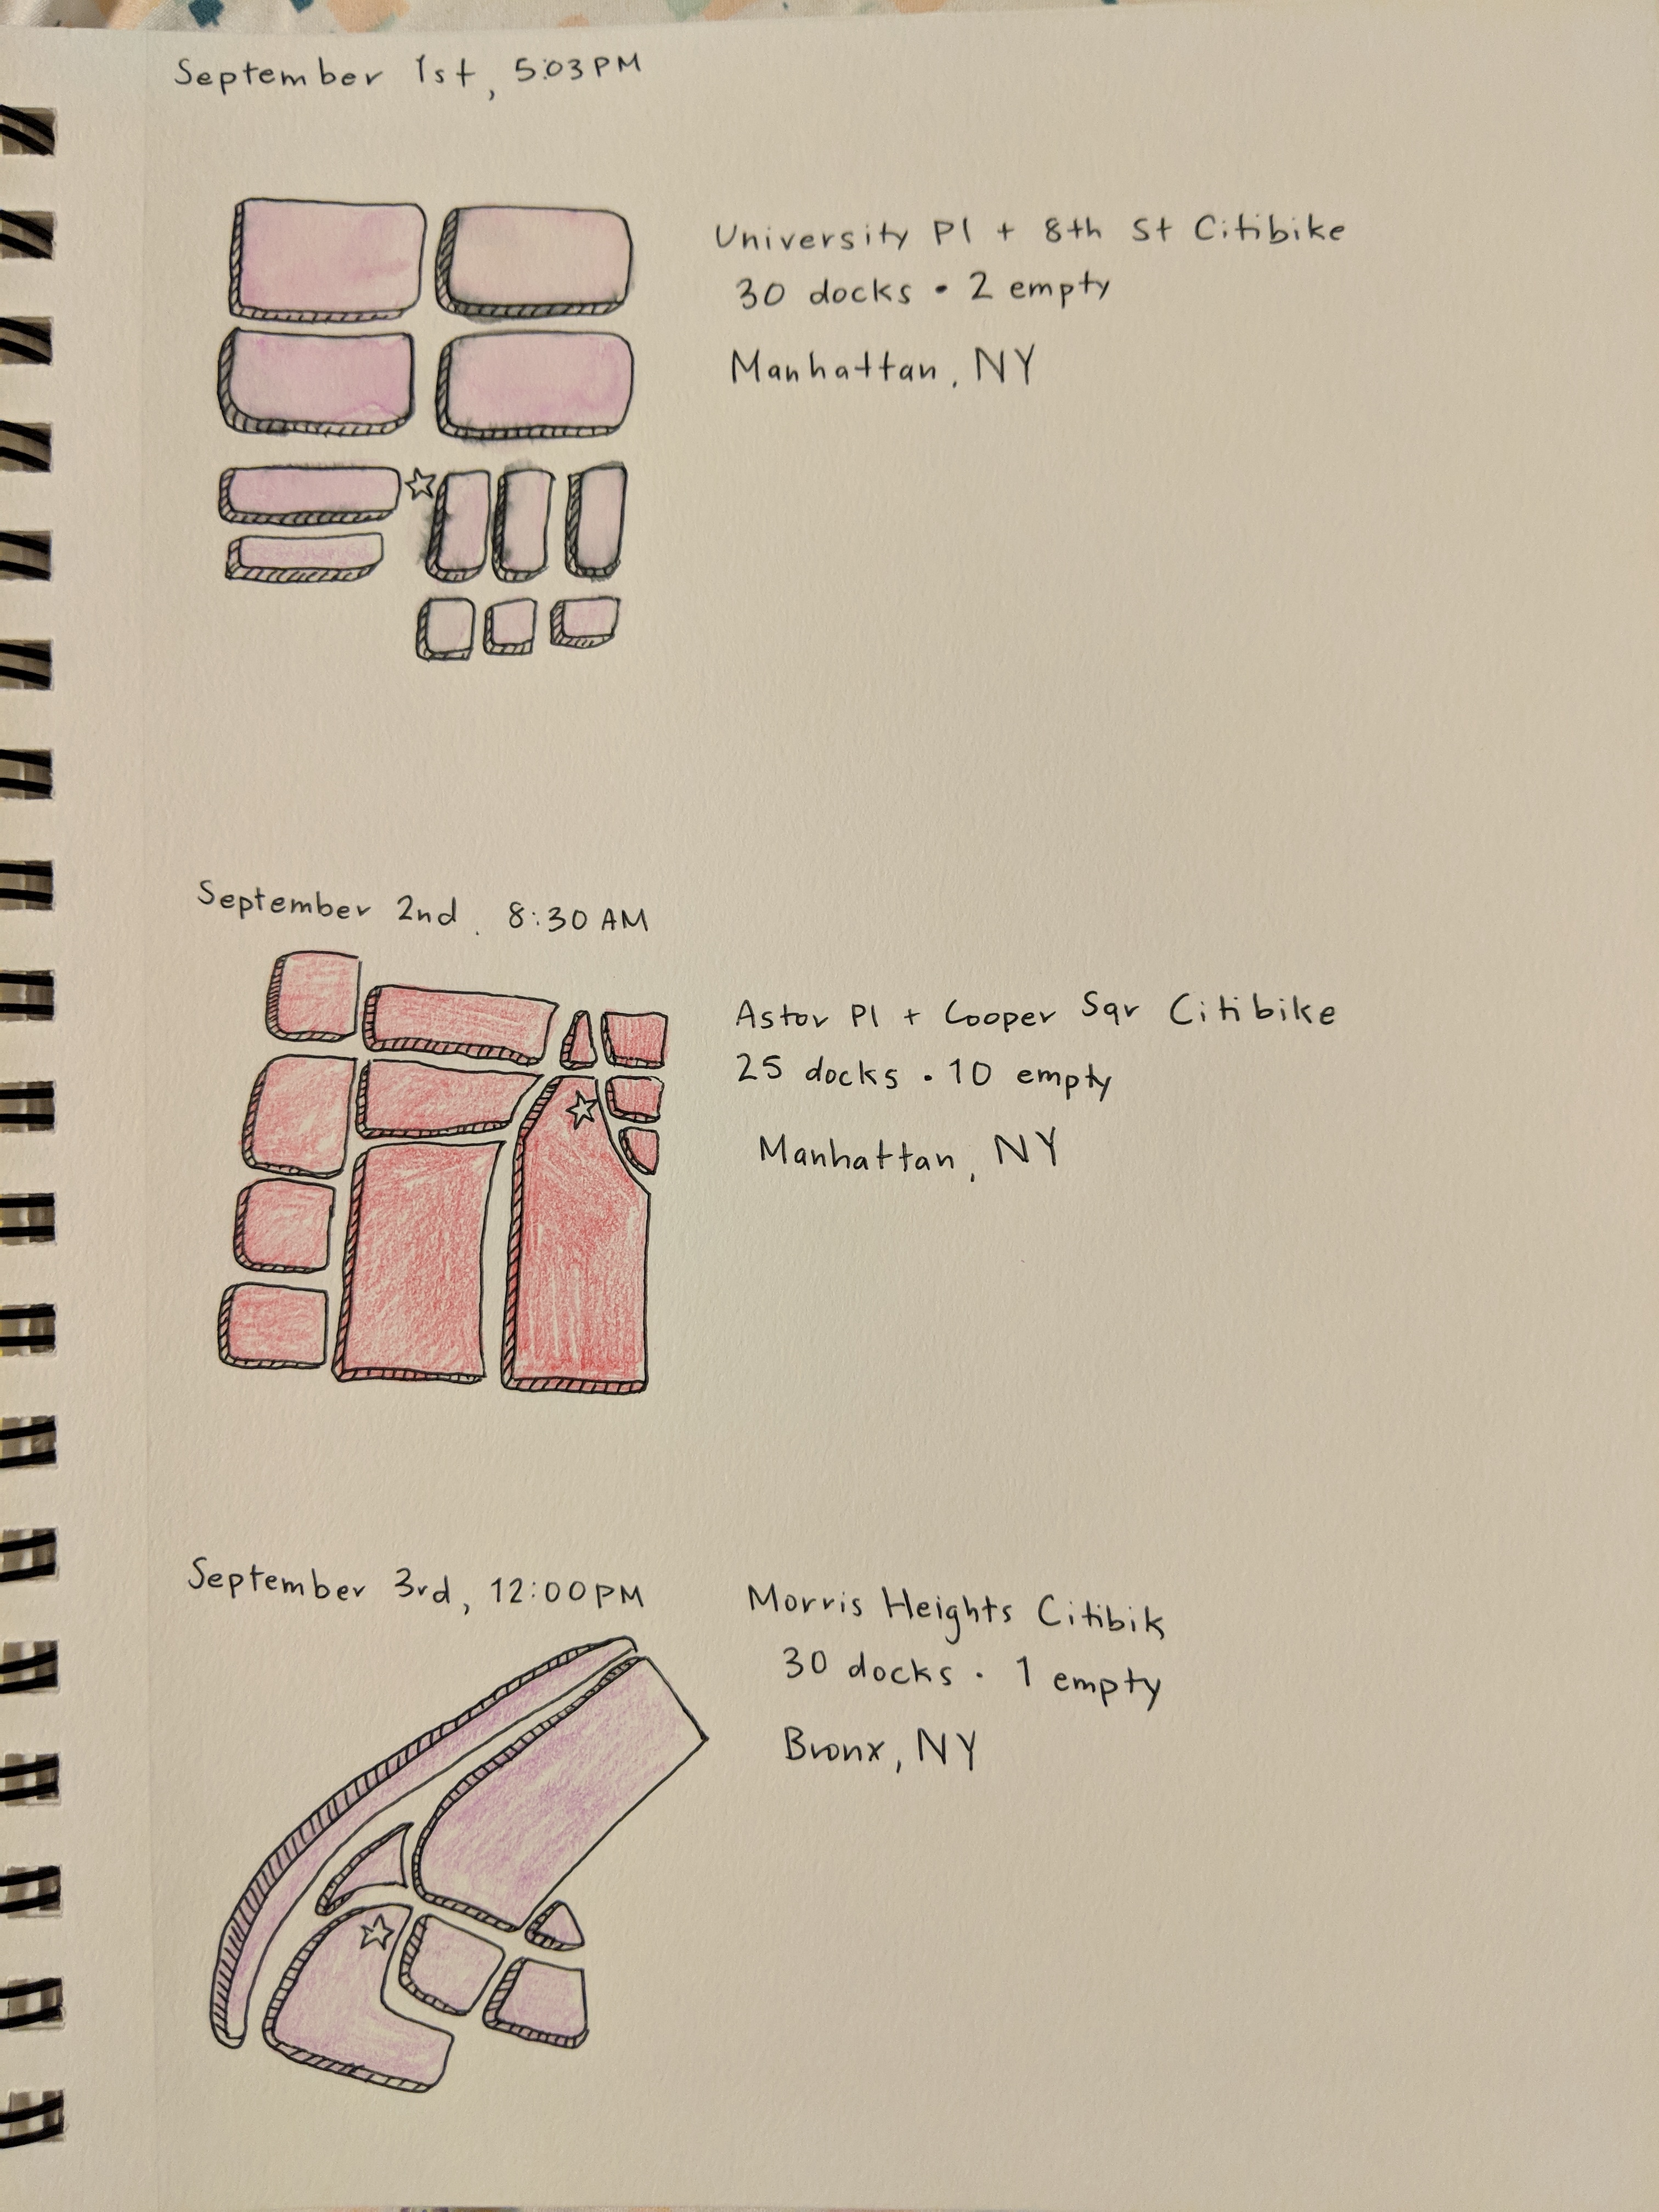 September 1st, 5:03PM
University Pl + 8th St Citibike
30 docks • 2 empty
Manhattan, NY
September 2nd, 8:30 AM
Astor Pl + Cooper Sqr Citibike
25 docks • 10 empty
Manhattan, NY
September 3rd, 12:00PM
Morris Heights Citibik
30 docks • 1 empty
Bronx, NY